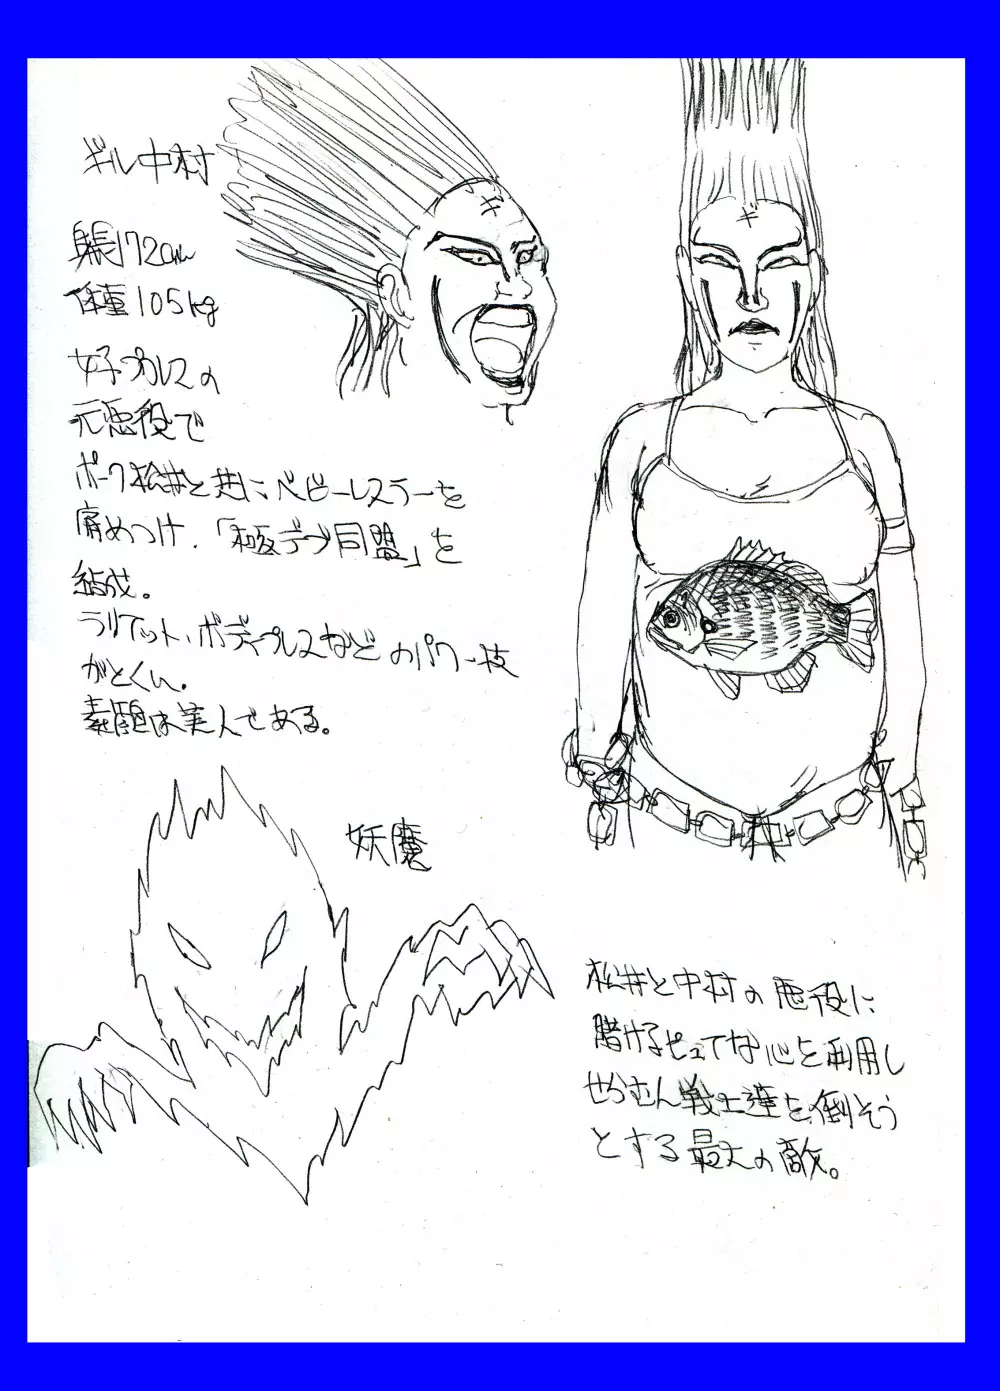 ギル中村
ギ
身長172cm
体重105kg
女子プロレスの
元悪役で
ポーク松井と共にベビーレスラーを
痛めつけ、「極デブ同盟」を
結成。
ラリアット、ボディプレスなどのパワー技
がとくい。
素顔は美人である。
ギ
妖魔
松井と中村の悪役に
賭けるピュアな心を利用し
せらむん戦士達を倒そう
とする最大の敵。